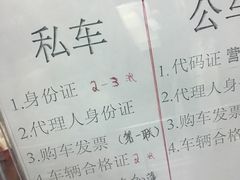 私车
1.身份证 2-3
2.代理人身份证
3.购车发票（第一联）
4.车辆合格证 2
公
1.代码证 营
2.代理人
3.购车发
4.车辆